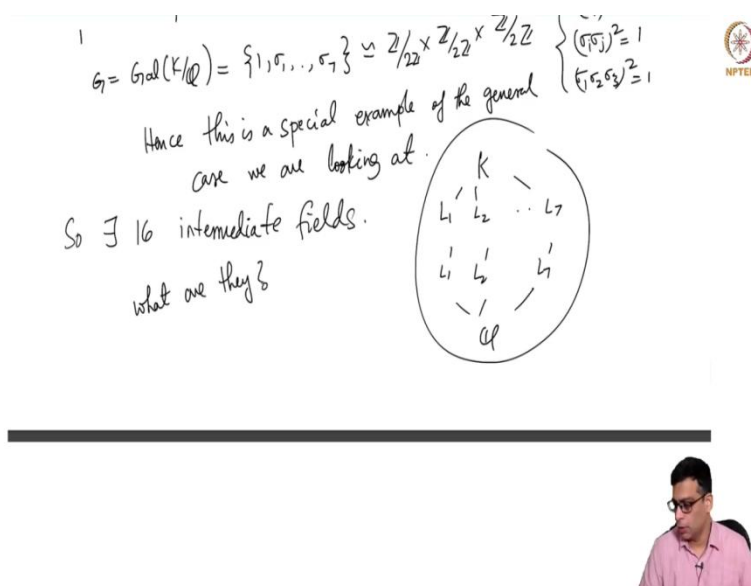 G = Gal(K/ℚ) = {1, σ₁, .., σ₇} ≃ ℤ/2ℤ × ℤ/2ℤ × ℤ/2ℤ
(σᵢσⱼ)² = 1
(σ₁σ₂σ₃)² = 1
NPTEL
Hence this is a special example of the general
case we are looking at.
So ∃ 16 intermediate fields.
what are they?
K
L₁ L₂ .. L₇
L₁' L₂' L₇'
ℚ